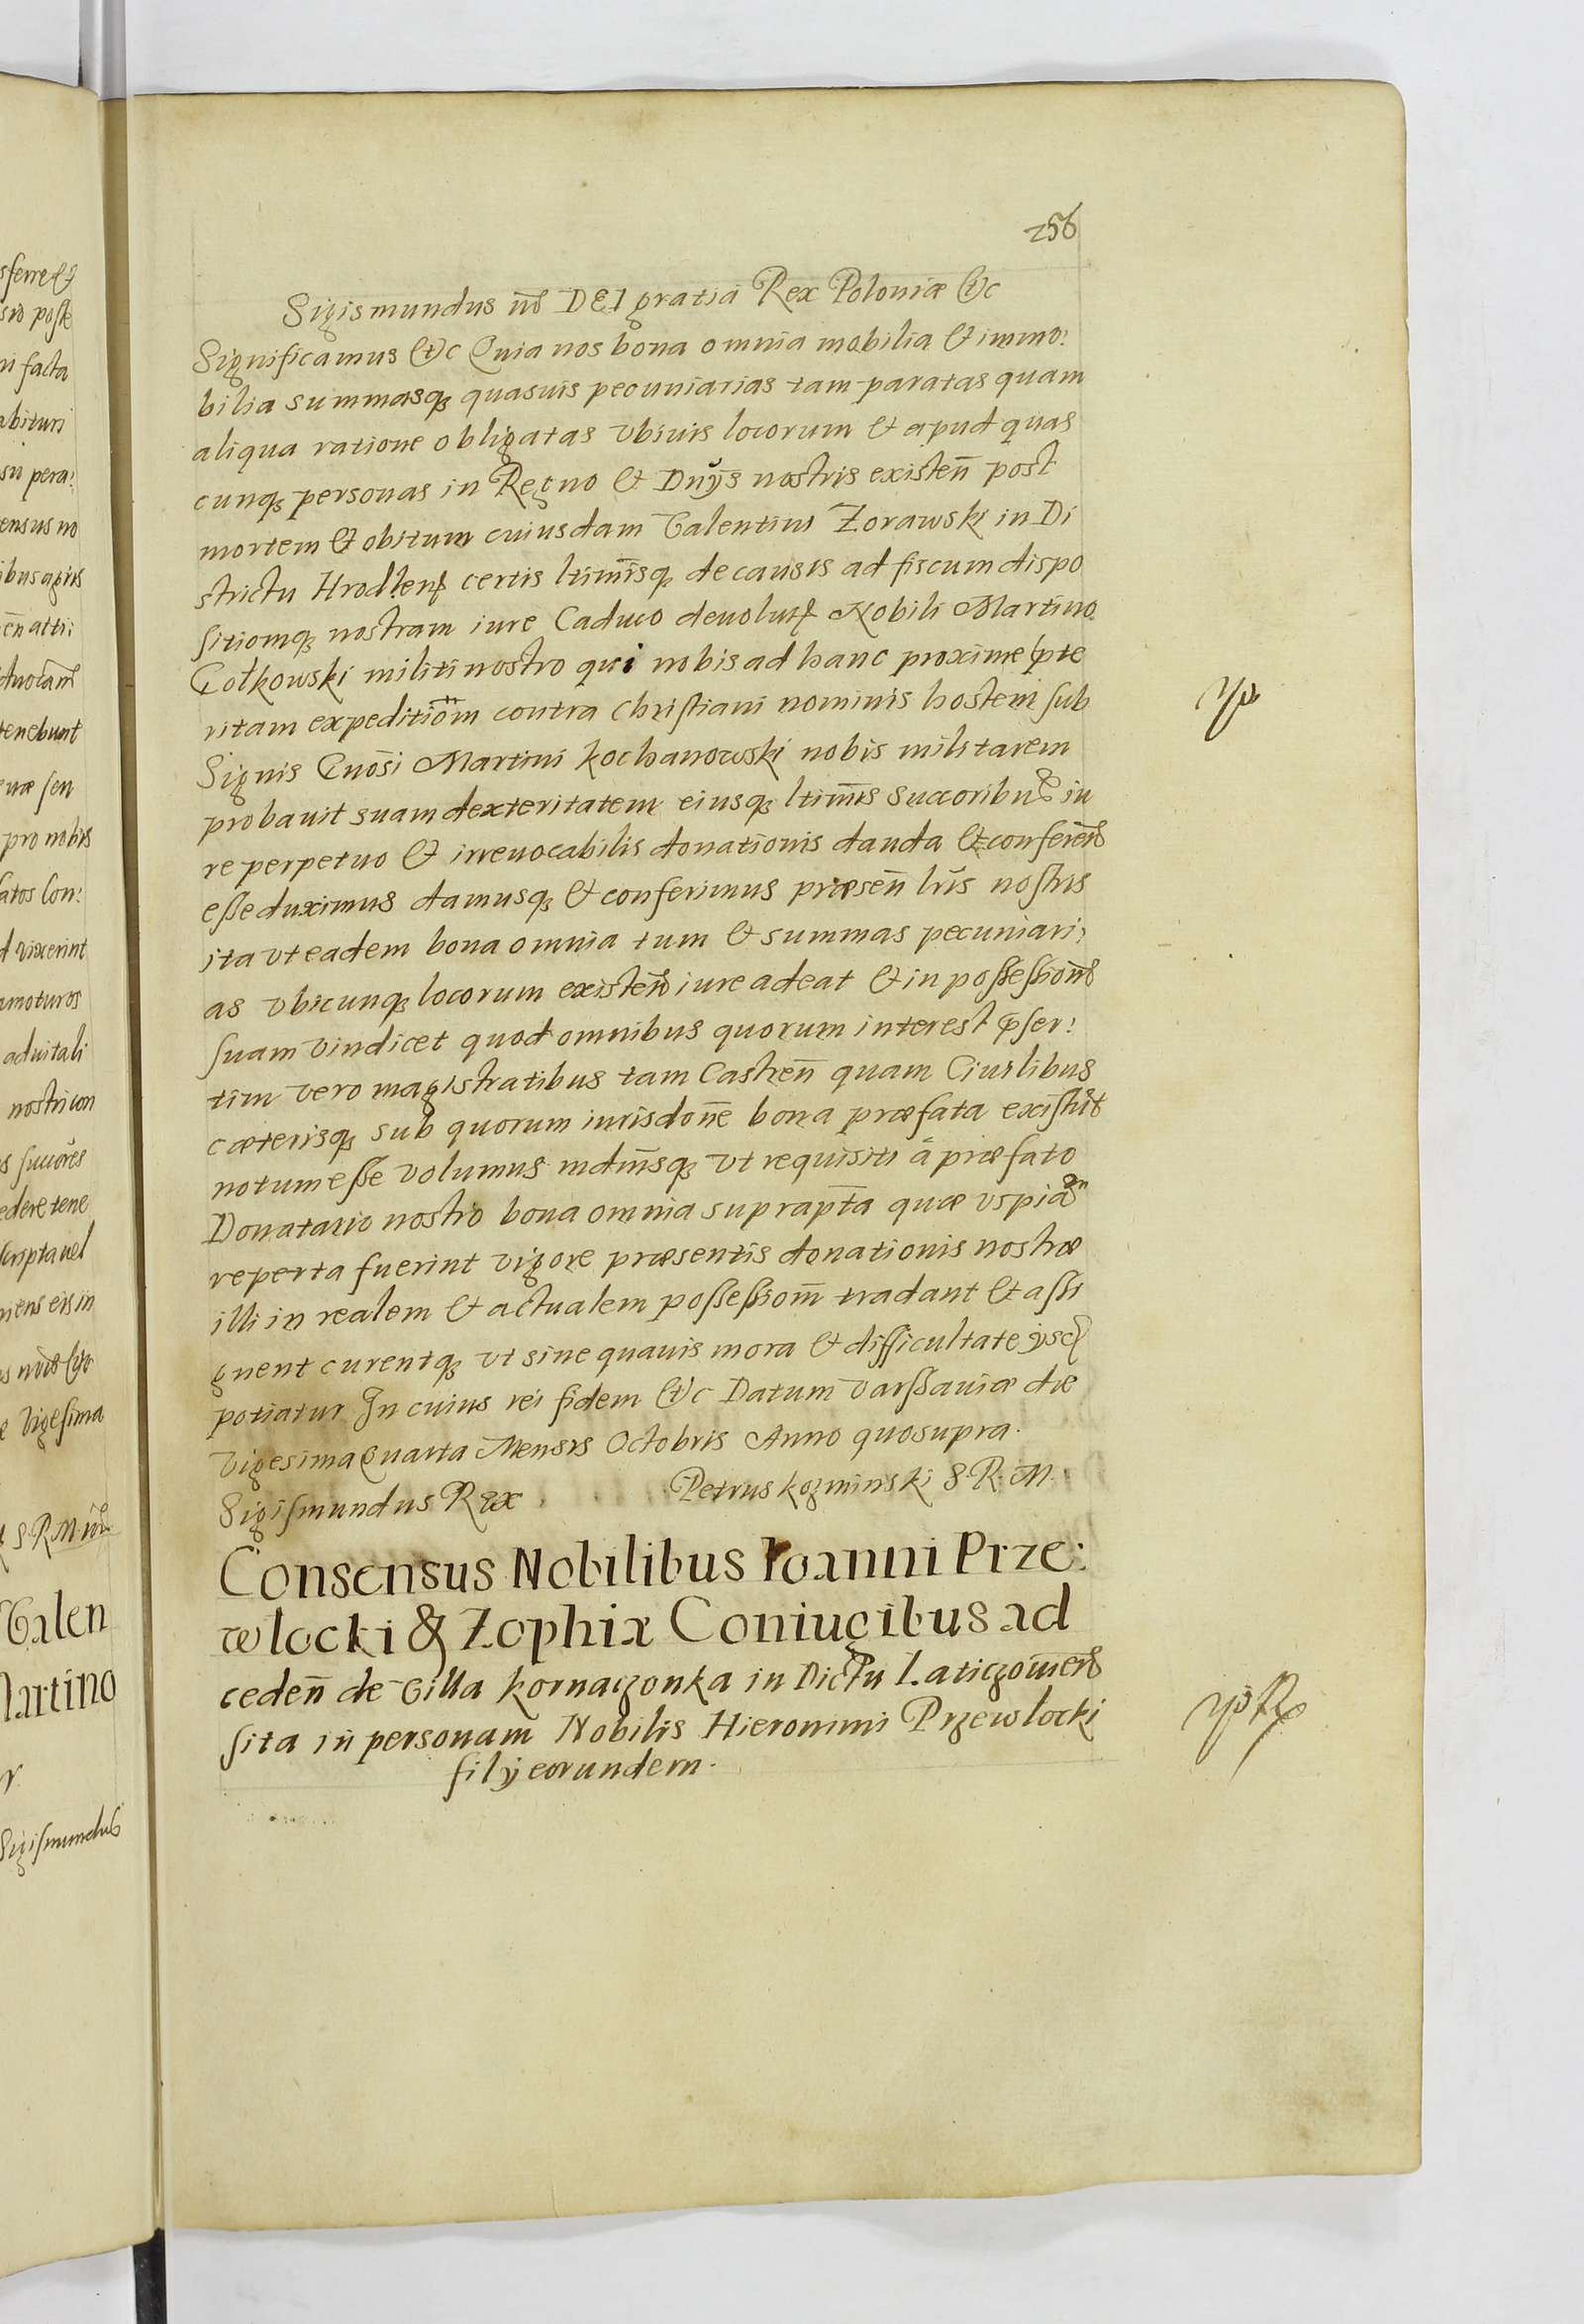 256
Sigismundus iiiˢ DEI gratia Rex Poloniæ &c
Significamus &c Quia nos bona omnia mobilia & immo:
bilia summasq quasuis pecuniarias tam paratas quam
aliqua ratione obligatas vbiuis locorum & apud quas
cunq personas in Regno & Dnÿs nostris existen̄ post
mortem & obitum cuiusdam Valentini Zorawski in Di
strictu Hrodlen̄ certis ltimisq de causis ad fiscum dispo
sitiomq nostram iure Caduco deuolut Nobili Martino
Gołkowski militi nostro qui nobis ad hanc proxime pte
ritam expeditiom̄ contra Christiani nominis hostem sub
Signis Gnōsi Martini Kochanowski nobis militarem
probauit suam dexteritatem eiusq ltimis succoribus iu
re perpetuo & irreuocabilis donationis danda & conferen̄
esse duximus damusq & conferimus præsen̄ lris nostris
ita vt eadem bona omnia tum & summas pecuniari:
as vbicunq locorum existen̄ iure adeat & in possession̄
suam vindicet quod omnibus quorum interest p̄ser:
tim vero magistratibus tam Castren̄ quam Ciuilibus
cæterisq sub quorum iurisdone bona præfata existūt
notum esse volumus mdmsq vt requisiti á præfato
Donatario nostro bona omnia suprapta quæ vspiam
reperta fuerint vigore præsentis donationis nostræ
illi in realem & actualem possessiom̄ tradant & assi
gnent curentq vt sine quauis mora & difficultate ÿsd
potiatur In cuius rei fidem &c Datum Varssauiæ die
Vigesima Quarta Mensis Octobris Anno quo supra.
Sigismundus Rex Petrus kozminski S. R. M.
Consensus Nobilibus Ioanni Prze:
wlocki & Zophiæ Coniugibus ad
ceden̄ de Villa Kornaczonka in Dictu Laticzoujen̄
sita in personam Nobilis Hieronimi Przewlocki
filÿ eorundem.